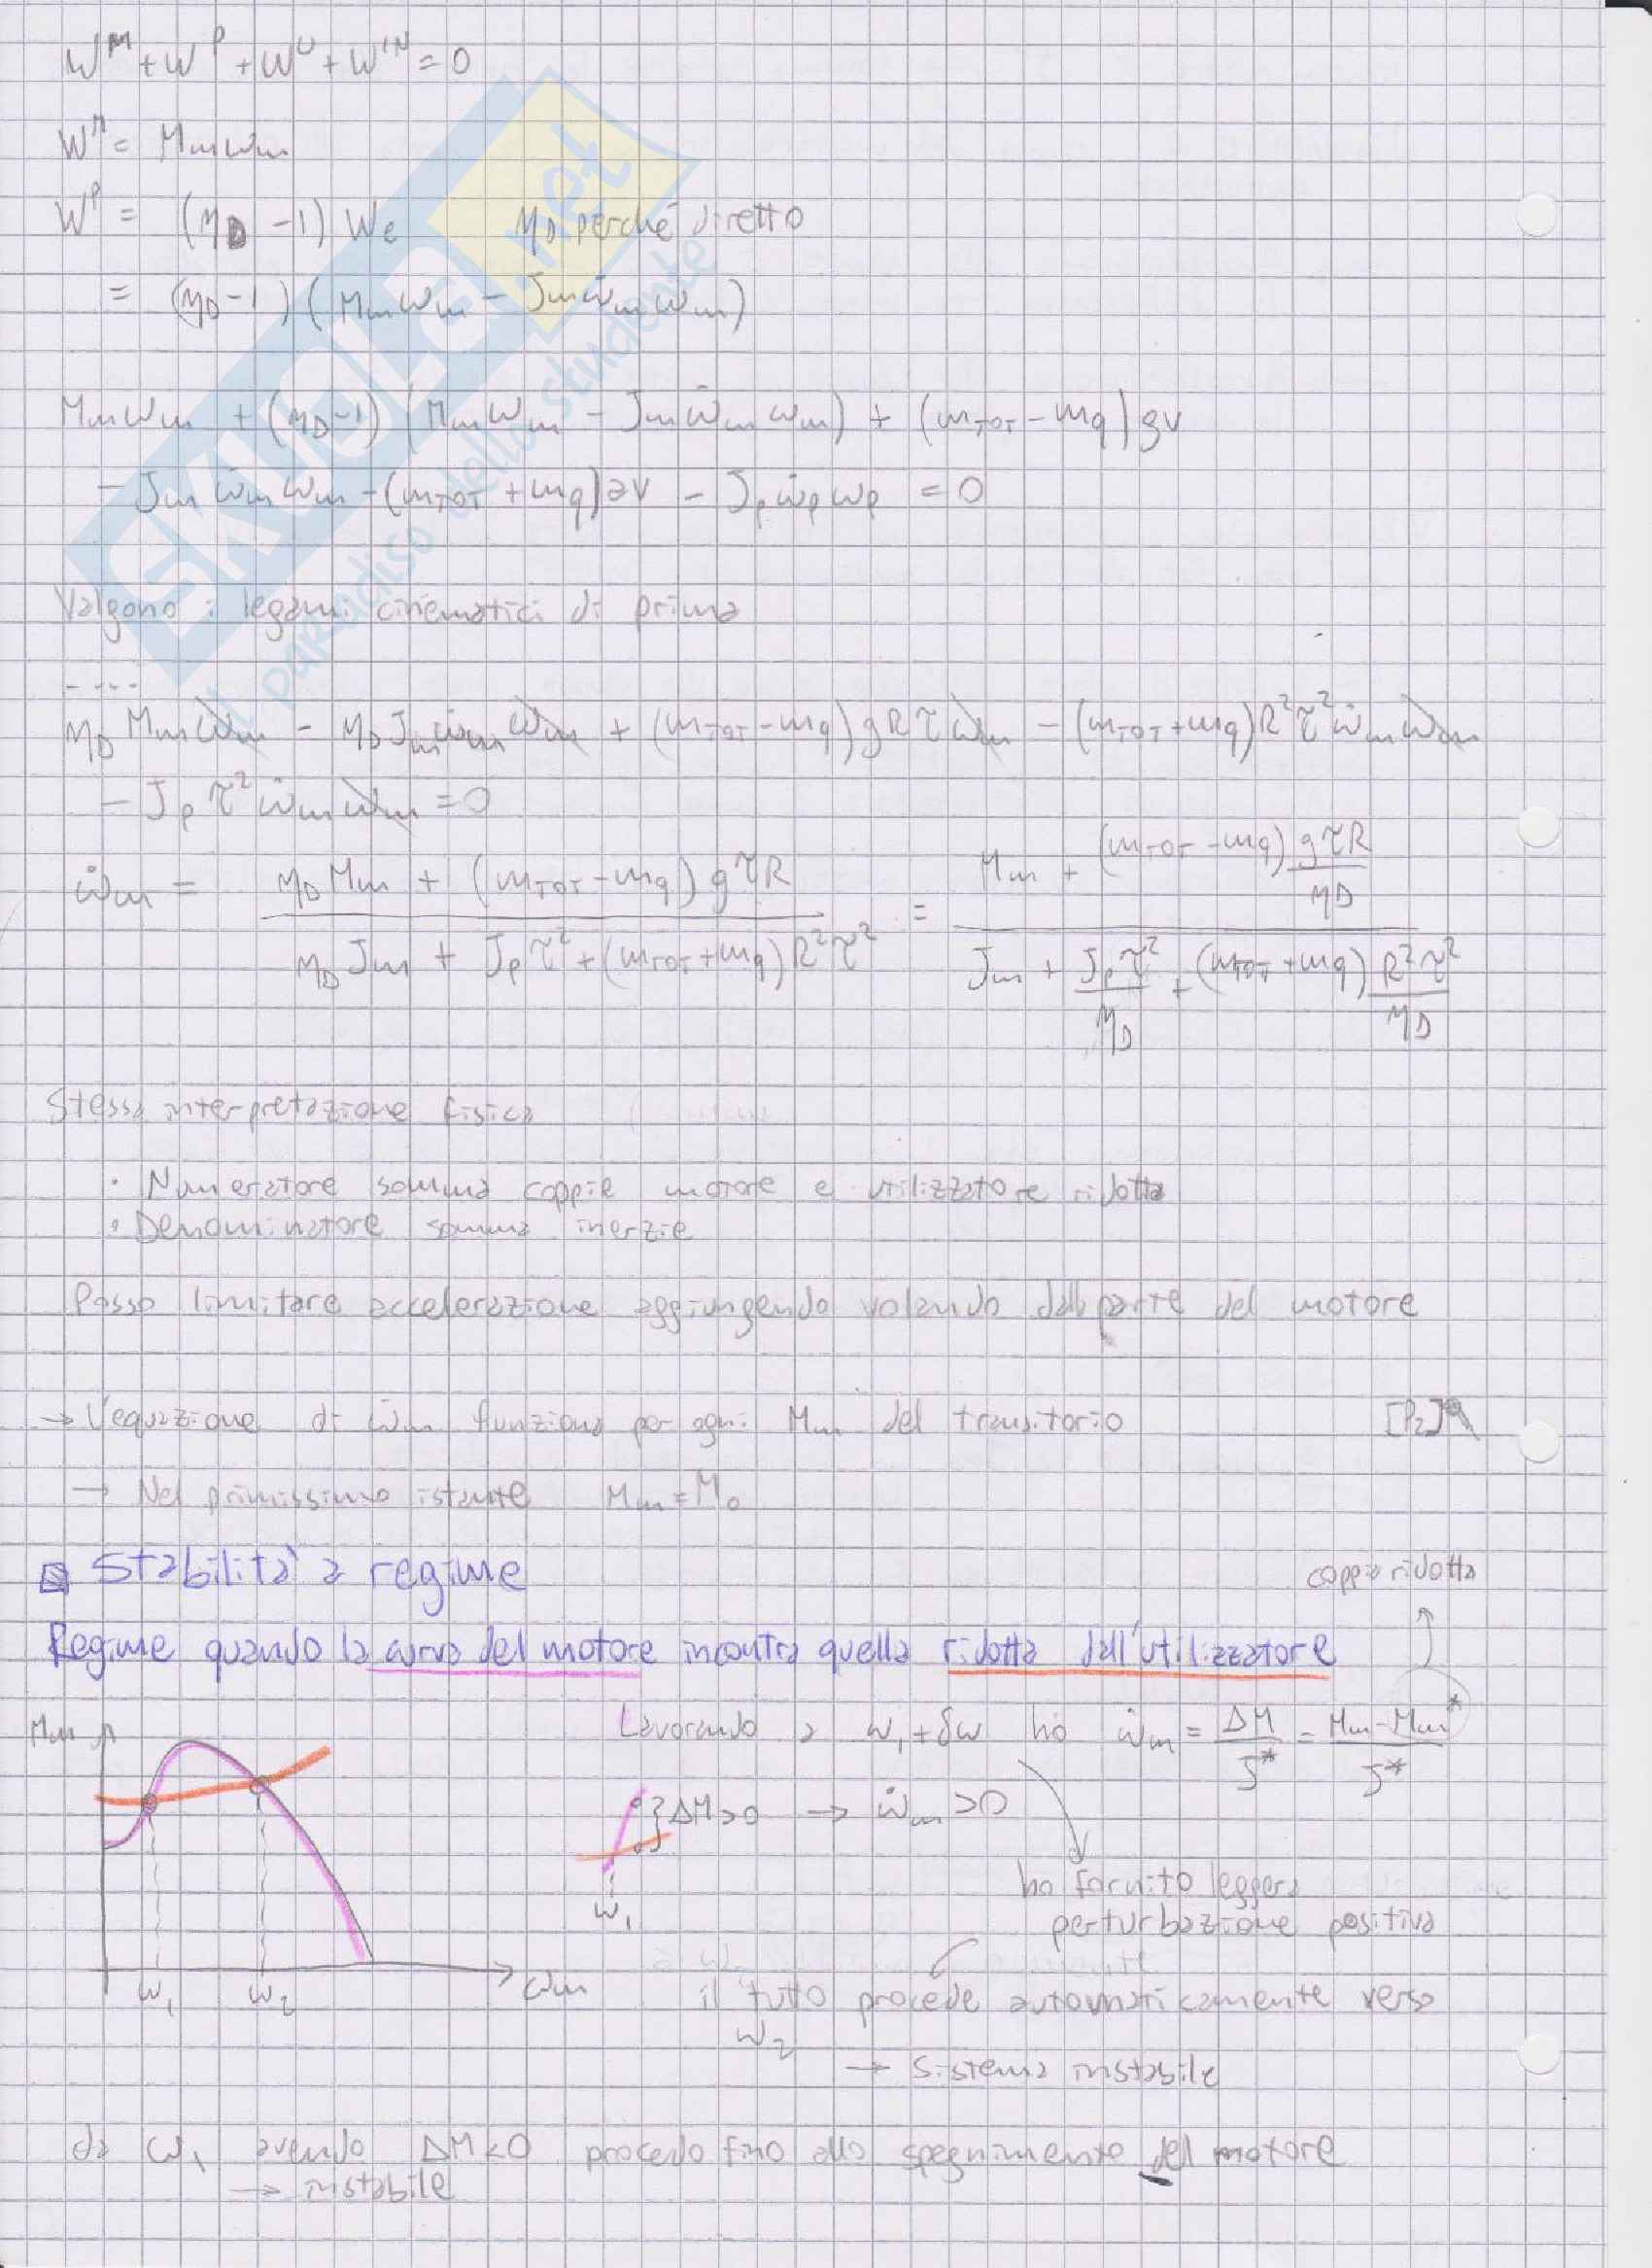 W^M + W^P + W^U + W^IN = 0
W^M = Mm ωm
W^P = (ηD - 1) We    ηD perché diretto
= (ηD - 1) (Mm ωm - Jm ω̇m ωm)
Mm ωm + (ηD - 1) (Mm ωm - Jm ω̇m ωm) + (mTOT - mq) g v
- Jm ω̇m ωm - (mTOT + mq) a v - Jp ω̇p ωp = 0
Valgono i legami cinematici di prima
----
ηD Mm ωm - ηD Jm ω̇m ωm + (mTOT - mq) g R τ ωm - (mTOT + mq) R² τ² ω̇m ωm
- Jp τ² ω̇m ωm = 0
ω̇m = (ηD Mm + (mTOT - mq) g τ R) / (ηD Jm + Jp τ² + (mTOT + mq) R² τ²) = (Mm + (mTOT - mq) g τ R / ηD) / (Jm + Jp τ² / ηD + (mTOT + mq) R² τ² / ηD)
Stessa interpretazione fisica
· Numeratore somma coppie motore e utilizzatore ridotta
· Denominatore somma inerzie
Posso limitare accelerazione aggiungendo volando dalla parte del motore
→ L'equazione di ω̇m funziona per ogni Mm del transitorio [P2]
→ Nel primissimo istante Mm = M0
Stabilità a regime
coppia ridotta
Regime quando la curva del motore incontra quella ridotta dall'utilizzatore
Mm
Lavorando a ω1 + δω ho ω̇m = ΔM / J* = Mm - Mm* / J*
} ΔM > 0 → ω̇m > 0
ω1
ho fornito leggera
perturbazione positiva
ω1 ω2 ωm
il tutto procede automaticamente verso
ω2
→ Sistema instabile
da ω1 avendo ΔM < 0 procedo fino allo spegnimento del motore
→ instabile
SKUOLA.net
il paradiso dello studente